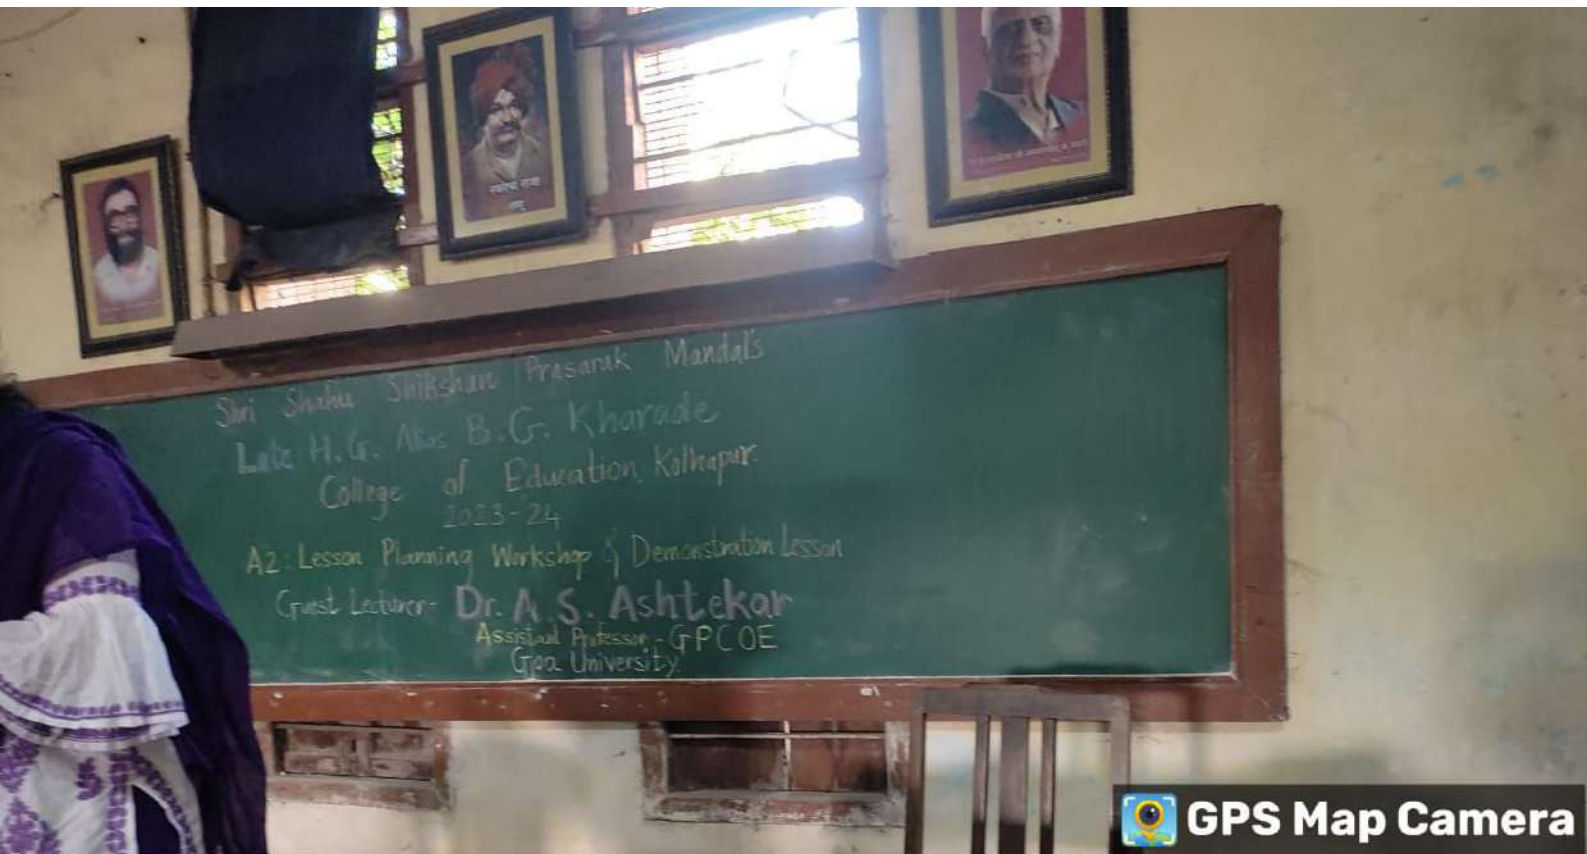 Shri Shahu Shikshan Prasarak Mandal's
Late H.G. Alias B.G. Kharade
College of Education Kolhapur
2023-24
A2: Lesson Planning Workshop & Demonstration Lesson
Guest Lecturer- Dr. A. S. Ashtekar
Assistant Professor - GPCOE
Goa University
GPS Map Camera